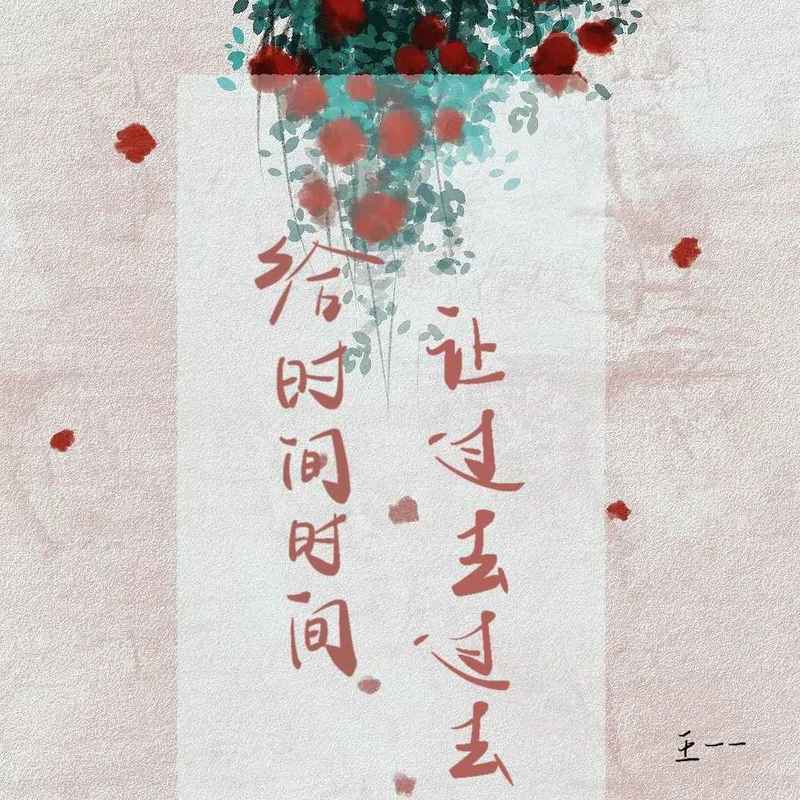 给时间时间
让过去过去
王一一